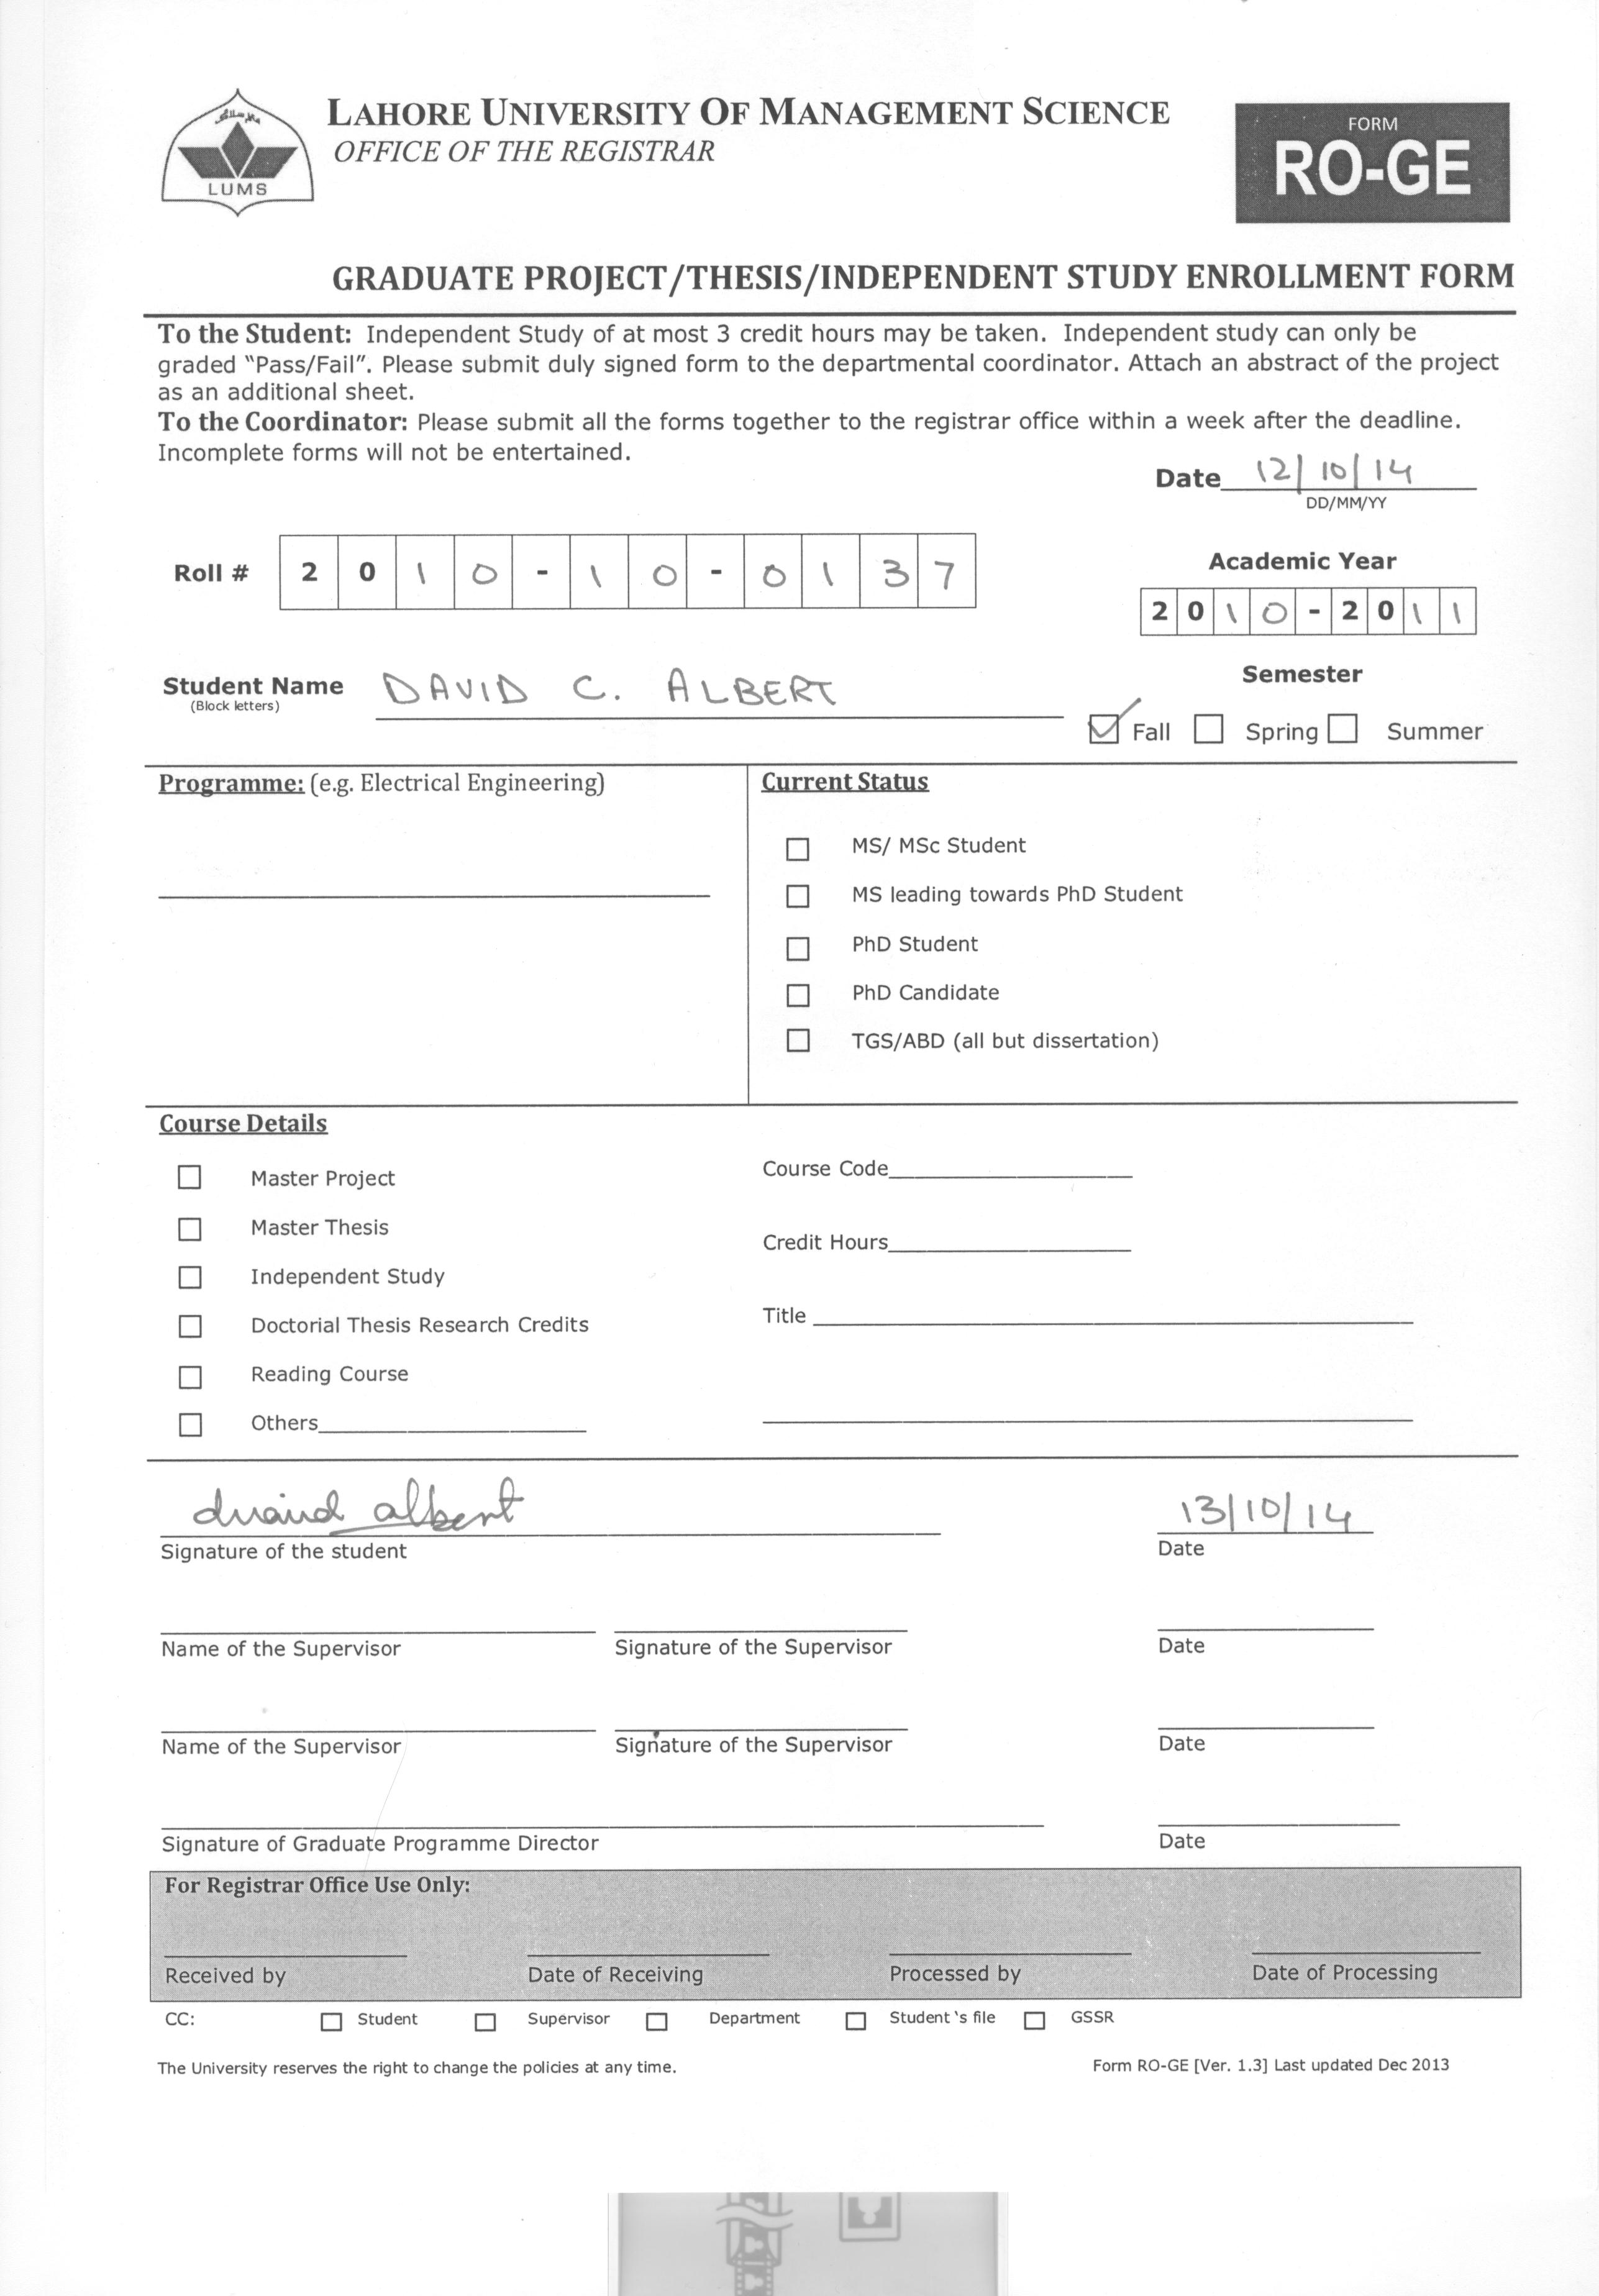 LUMS
LAHORE UNIVERSITY OF MANAGEMENT SCIENCE
OFFICE OF THE REGISTRAR
FORM
RO-GE
GRADUATE PROJECT/THESIS/INDEPENDENT STUDY ENROLLMENT FORM
To the Student: Independent Study of at most 3 credit hours may be taken. Independent study can only be
graded "Pass/Fail". Please submit duly signed form to the departmental coordinator. Attach an abstract of the project
as an additional sheet.
To the Coordinator: Please submit all the forms together to the registrar office within a week after the deadline.
Incomplete forms will not be entertained.
Date 12/10/14
DD/MM/YY
Roll # 2010-10-0137
Academic Year
2010-2011
Student Name DAVID C. ALBERT
(Block letters)
Semester
Fall Spring Summer
Programme: (e.g. Electrical Engineering)
Current Status
MS/ MSc Student
MS leading towards PhD Student
PhD Student
PhD Candidate
TGS/ABD (all but dissertation)
Course Details
Master Project
Master Thesis
Independent Study
Doctorial Thesis Research Credits
Reading Course
Others
Course Code
Credit Hours
Title
albert 13/10/14
Signature of the student Date
Name of the Supervisor Signature of the Supervisor Date
Name of the Supervisor Signature of the Supervisor Date
Signature of Graduate Programme Director Date
For Registrar Office Use Only:
Received by Date of Receiving Processed by Date of Processing
CC: Student Supervisor Department Student's file GSSR
The University reserves the right to change the policies at any time. Form RO-GE [Ver. 1.3] Last updated Dec 2013